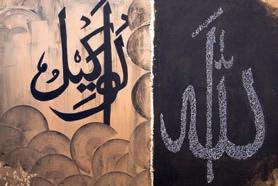 الله
الوكيل